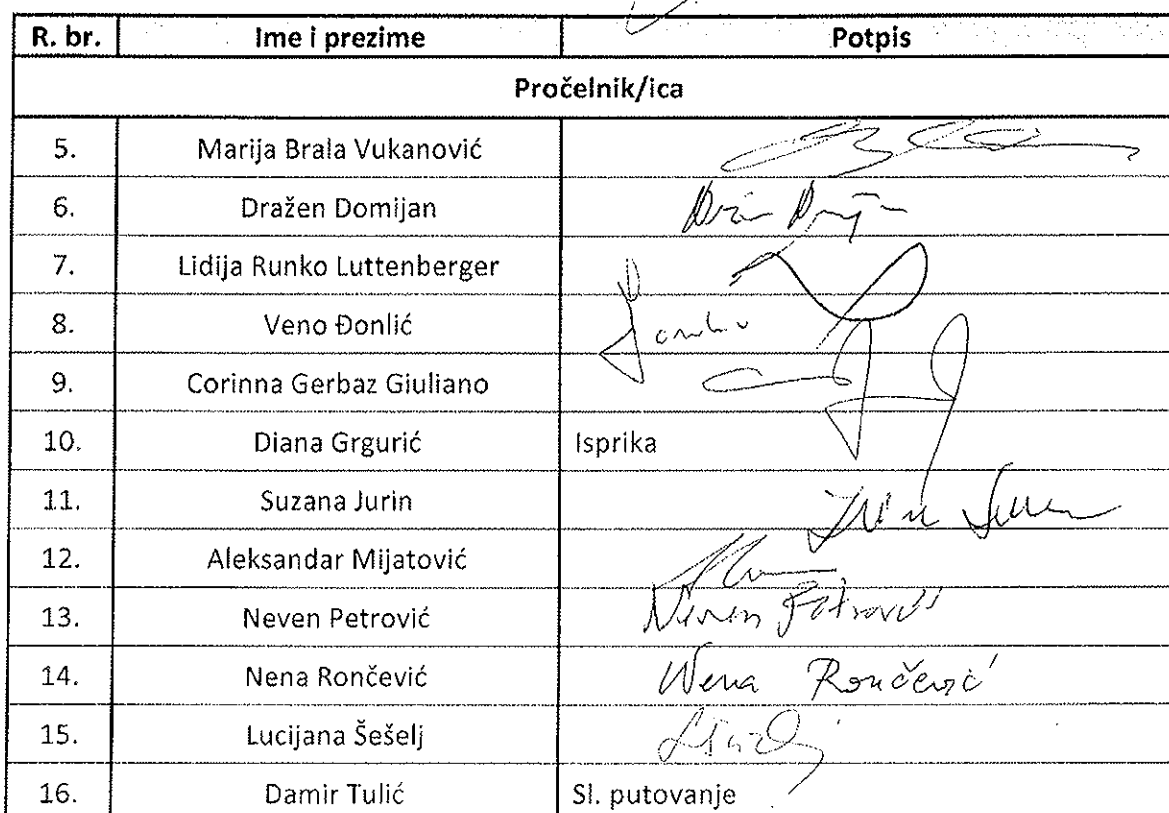 R. br. Ime i prezime Potpis
Pročelnik/ica
5. Marija Brala Vukanović
6. Dražen Domijan
7. Lidija Runko Luttenberger
8. Veno Đonlić
9. Corinna Gerbaz Giuliano
10. Diana Grgurić Isprika
11. Suzana Jurin
12. Aleksandar Mijatović
13. Neven Petrović Neven Petrović
14. Nena Rončević Nena Rončević
15. Lucijana Šešelj
16. Damir Tulić Sl. putovanje